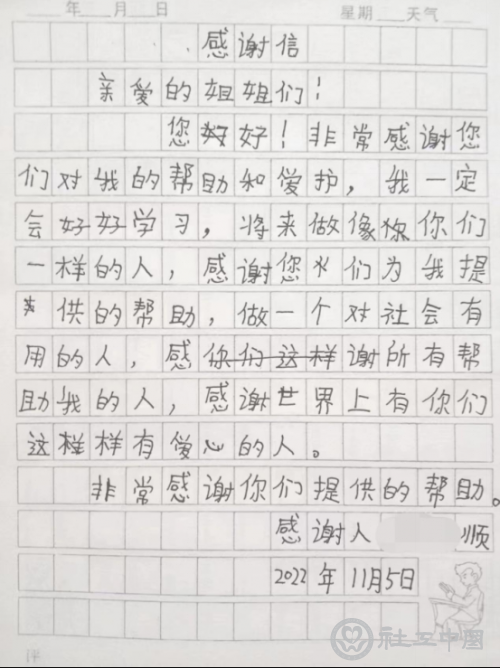 年 月 日 星期 天气
感谢信
亲爱的姐姐们！
您好好！非常感谢您
们对我的帮助和爱护，我一定
会好好学习，将来做像你你们
一样的人，感谢您们为我提
供的帮助，做一个对社会有
用的人，感你们这样谢所有帮
助我的人，感谢世界上有你们
这样样有爱心的人。
非常感谢你们提供的帮助。
感谢人 顺
2022年11月5日
社工中国